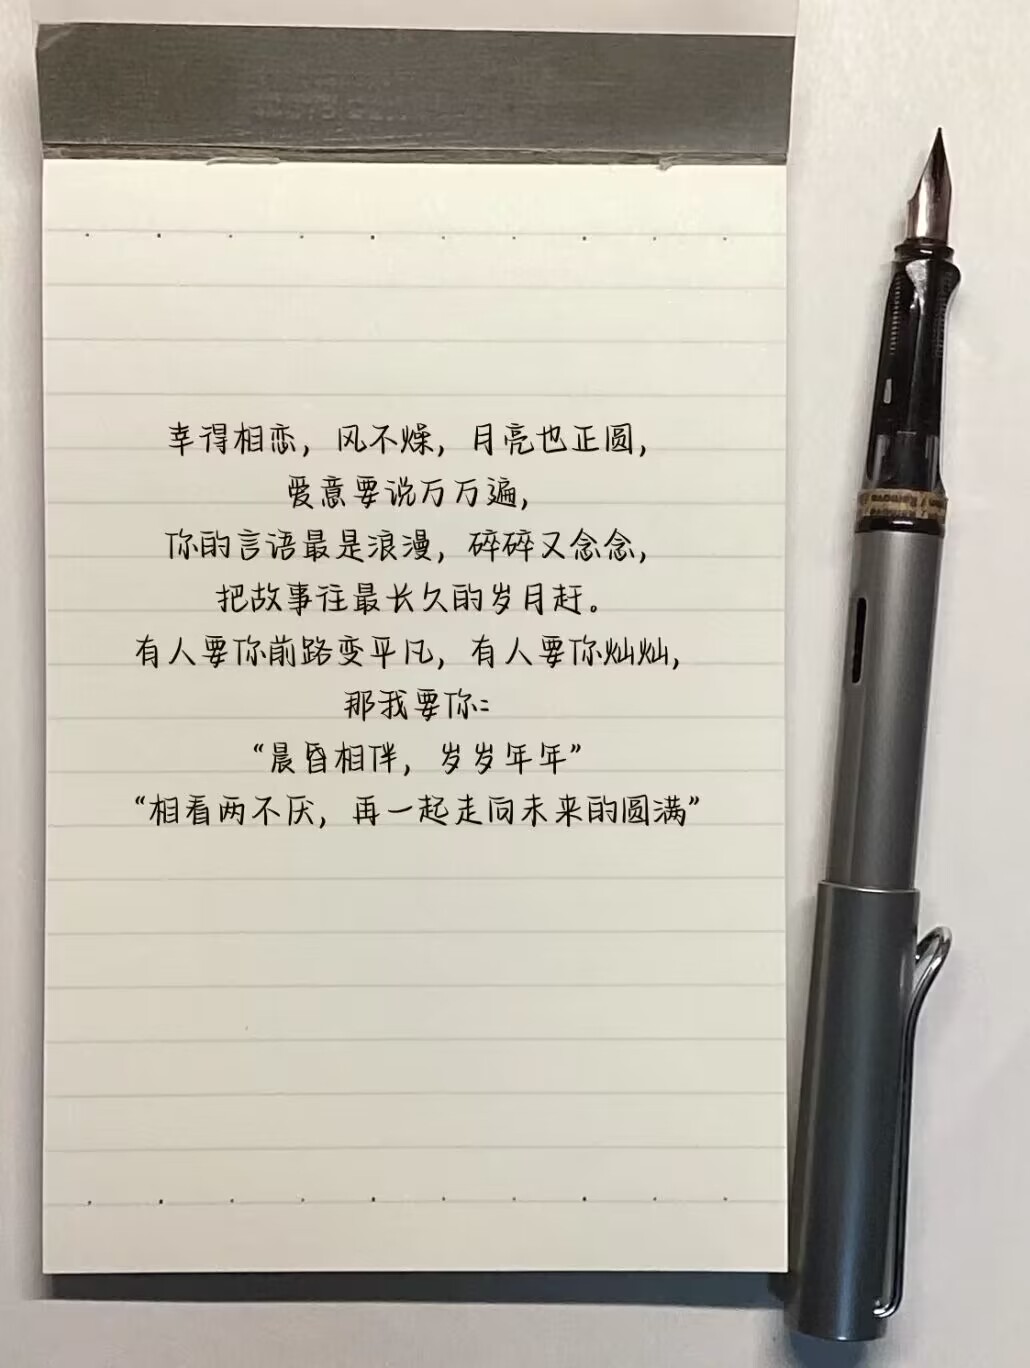 幸得相恋，风不燥，月亮也正圆，
爱意要说万万遍，
你的言语最是浪漫，碎碎又念念，
把故事往最长久的岁月赶。
有人要你前路变平凡，有人要你灿灿，
那我要你：
“晨昏相伴，岁岁年年”
“相看两不厌，再一起走向未来的圆满”